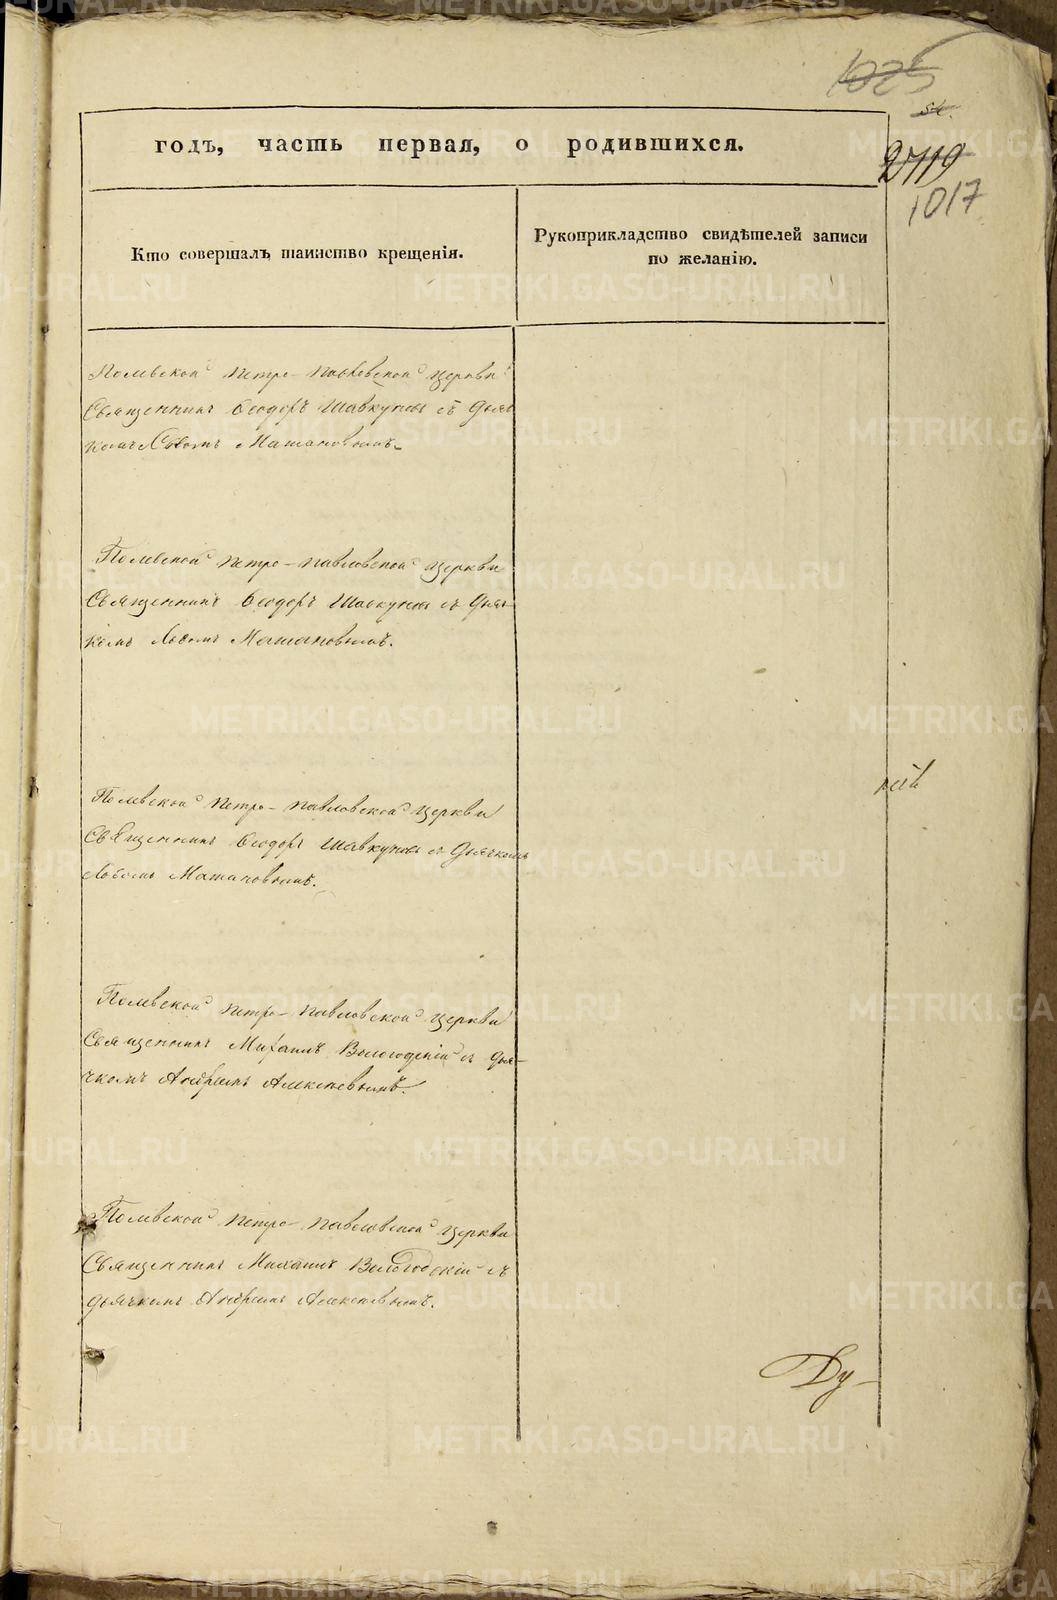 1025
54.
2719
1017
годъ, часть первая, о родившихся.
Кто совершалъ таинство крещенія.
Рукоприкладство свидѣтелей записи
по желанію.
Полевской Петро-Павловской церкви
Священникъ Ѳеодоръ Шавкуновъ съ Дьяч
комъ Матановымъ
Полевской Петро-Павловской церкви
Священникъ Ѳеодоръ Шавкуновъ съ Дьяч-
комъ Матановымъ.
Полевской Петро-Павловской церкви
Священникъ Ѳеодоръ Шавкуновъ съ Дьячкомъ
Матановымъ.
Полевской Петро-Павловской церкви
Священникъ Михаилъ Вологодскій съ Дья-
чкомъ Андреемъ Алексѣевымъ.
Полевской Петро-Павловской церкви
Священникъ Михаилъ Вологодскій съ
дьячкомъ Андреемъ Алексѣевымъ.
Ду-
METRIKI.GASO-URAL.RU